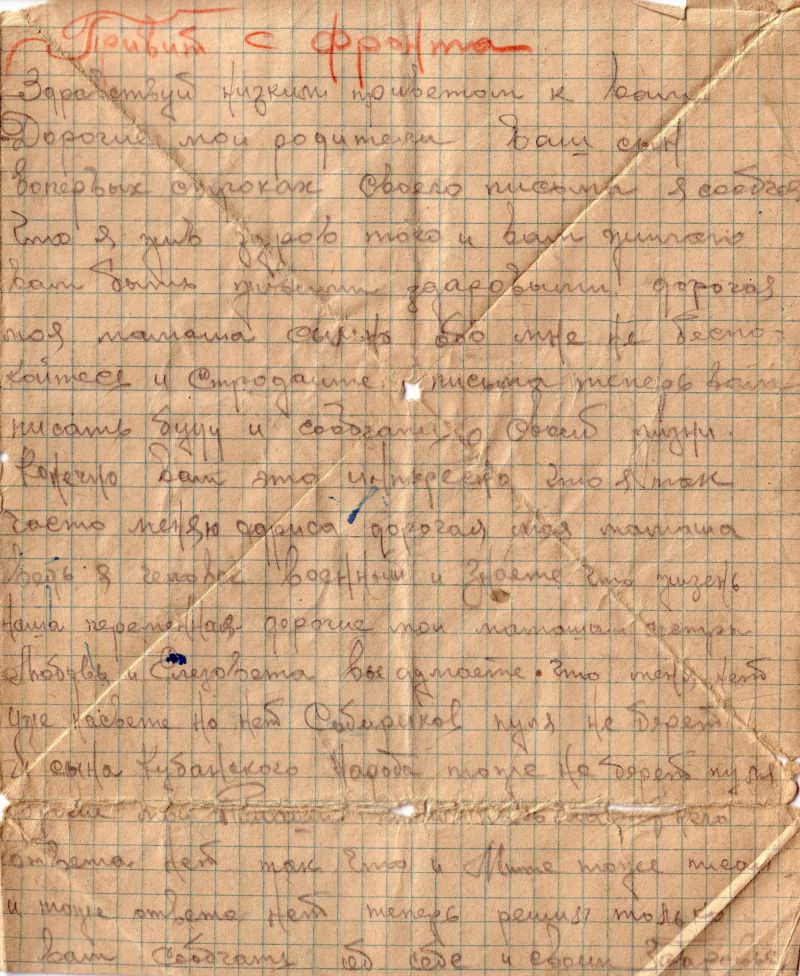 Привит с фронта
Здравствуй низким приветом к вам
Дорогие мои родители ваш сын
вопервых строках своего письма я сообчая
что я жив здоров того и вам жилаю
вам быть живыми здаровыми. дорогая
моя мамаша обо мне не беспо-
койтесь и страдаите, письма теперь вам
писать буду и собочать о своей жизни.
Конечно вам это интересно что я так
часто меняю адриса дорогая моя мамаша
ведь я человек военный и знаете что жизень
наша переменная дорогие мои мамаша и сестры
Любовь и Елезовета вы думаете. что меня нет
уже насвете но нет Сибиряков пуля не бярет
И сына Кубанского народа тоже не бярет пуля
мои него
ответа нет так что и Мите тоже писал
и тоже ответа нет теперь решил только
вам собочать об себе и своим здаровье